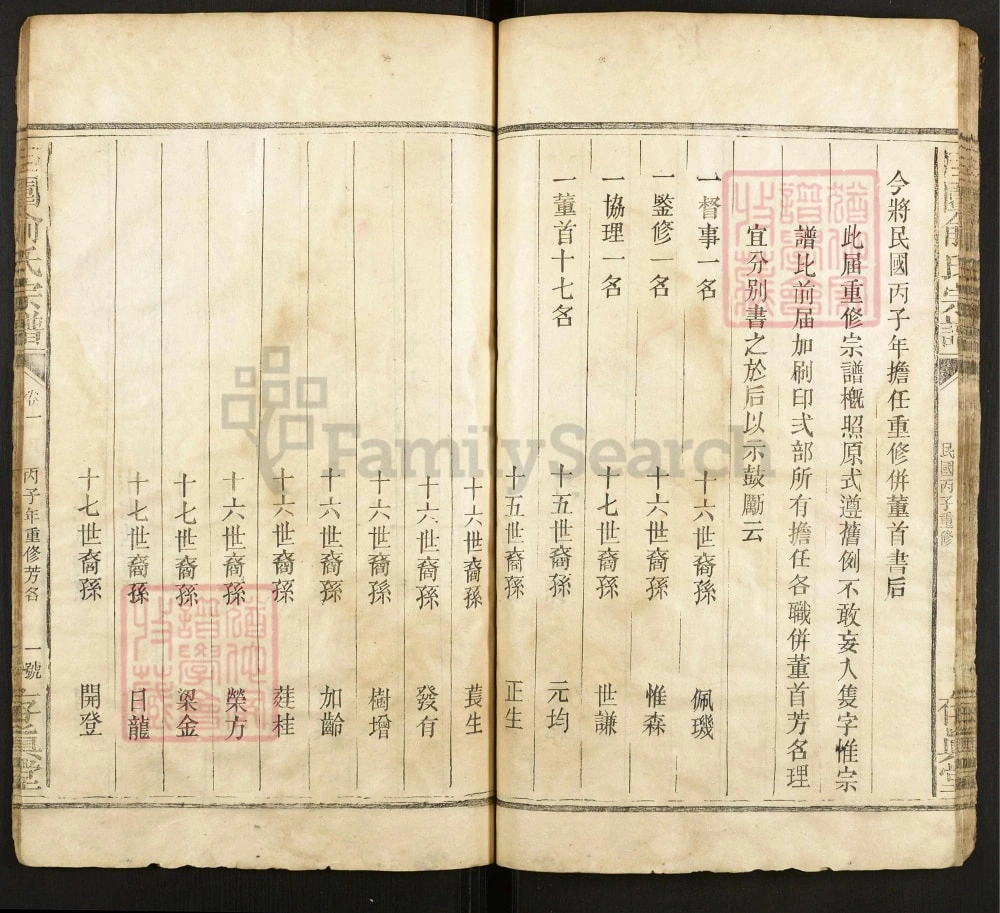 今將民國丙子年擔任重修併董首書后
此届重修宗譜概照原式遵舊例不敢妄人隻字惟宗
譜比前届加刷印弍部所有擔任各職併董首芳名理
宜分别書之於后以示鼓勵云
一督事一名 十六世裔孫 佩璣
一鑒修一名 十六世裔孫 惟森
一協理一名 十七世裔孫 世謙
一董首十七名 十五世裔孫 元均
十五世裔孫 正生
十六世裔孫 萇生
十六世裔孫 發有
十六世裔孫 樹增
十六世裔孫 加齡
十六世裔孫 莛桂
十六世裔孫 榮方
十七世裔孫 梁金
十七世裔孫 日龍
十七世裔孫 開登
民國丙子重修
俞氏宗譜
卷一
丙子年重修芳名
一號
FamilySearch